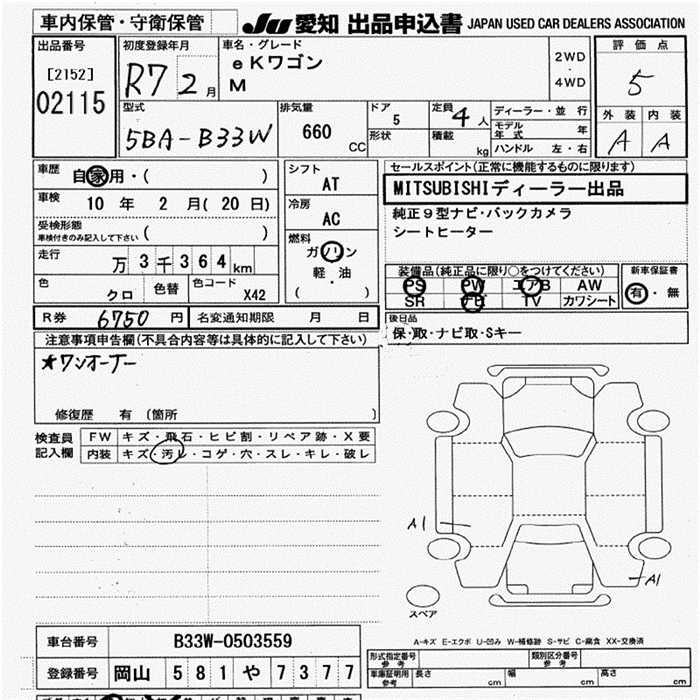 車内保管・守衛保管
JU 愛知 出品申込書 JAPAN USED CAR DEALERS ASSOCIATION
出品番号
[2152]
02115
初度登録年月
R7 2月
車名・グレード
eKワゴン
M
2WD
・
4WD
評価点
5
外装 内装
A A
型式
5BA-B33W
排気量
660
CC
ドア
5
形状
定員
4人
積載
kg
ディーラー・並行
モデル年式 年
ハンドル 左・右
車歴
自家用・( )
車検
10年 2月(20日)
受検形態
車検付きのみ記入して下さい ( )
走行
万3千364km
色
クロ
色替
色コード
X42
シフト
AT
冷房
AC
燃料
ガソリン
軽・油
( )
セールスポイント(正常に機能するものに限ります)
MITSUBISHIディーラー出品
純正9型ナビ・バックカメラ
シートヒーター
装備品(純正品に限り○をつけてください)
PS PW エアB AW
SR ナビ TV カワシート
新車保証書
有・無
R券 6750円
名変通知期限 月 日
後日品
保・取・ナビ取・Sキー
注意事項申告欄(不具合内容等は具体的に記入して下さい)
★ワンオーナー
修復歴 有 〔箇所 〕
検査員
記入欄
FW キズ・飛石・ヒビ割・リペア跡・X要
内装 キズ・汚レ・コゲ・穴・スレ・キレ・破レ
A1
A1
スペア
A-キズ E-エクボ U-凹み W-補修跡 S-サビ C-腐食 XX-交換済
車台番号 B33W-0503559
登録番号 岡山 581 や 7377
形式指定番号
参考
類別区分番号
参考
車庫証明用
参考
長さ cm 幅 cm 高さ cm